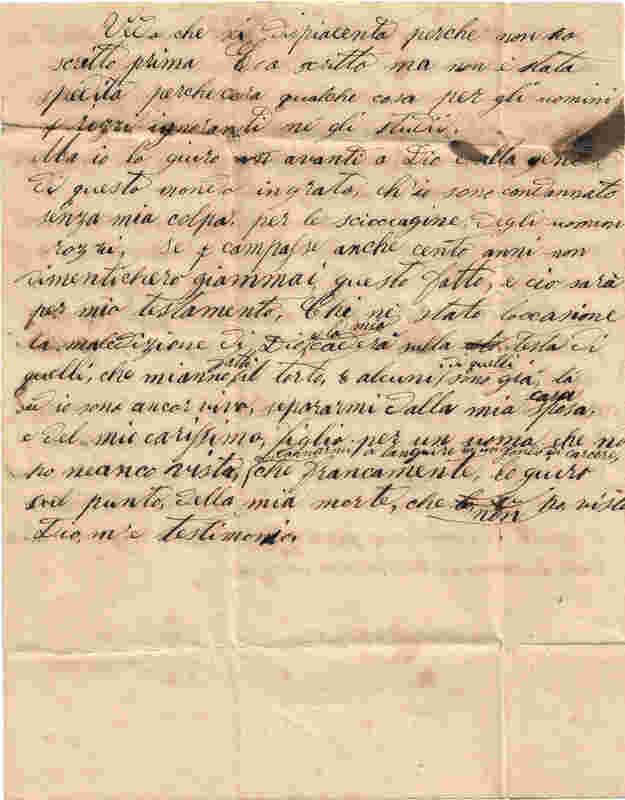 Vedo che si dispiacente perche non ho
scritto prima Era scritto ma non è stata
specita perchecera qualche cosa per gli uomini
rozzi ignoranti ne gli studii.
Ma io lo giuro avanti a Dio e alla gene
di questo mondo ingrato, ch'io sono condannato
senza mia colpa. per le scioccagine, degli uomini
rozzi, Se campasse anche cento anni non
dimentichero giammai questo fatto, e ciò sarà
per mio testamento, Chi ne stato loccasione
la maledizione di Dio, e la mia cadera nella testa di
quelli, che mianno fatto il torto, e alcuni di quelli sono già, là
ed io sono ancor vivo, separarmi dalla mia casa sposa,
e del mio carissimo, figlio. per un uomo che no
ho neanco vista, a languire in carcere,
che francamente, lo giuro
sul punto, della mia morte, che non ho visto
Dio, m'è testimonio.